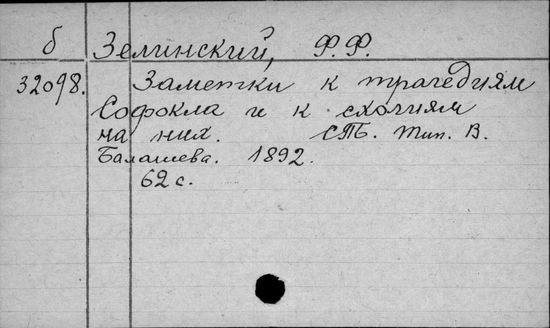 б Зелинский, Ф.Ф.
32098. Заметки к трагедиям
Софокла и к схолиям
на них. СПБ. тип. В.
Балашева. 1892.
62 с.